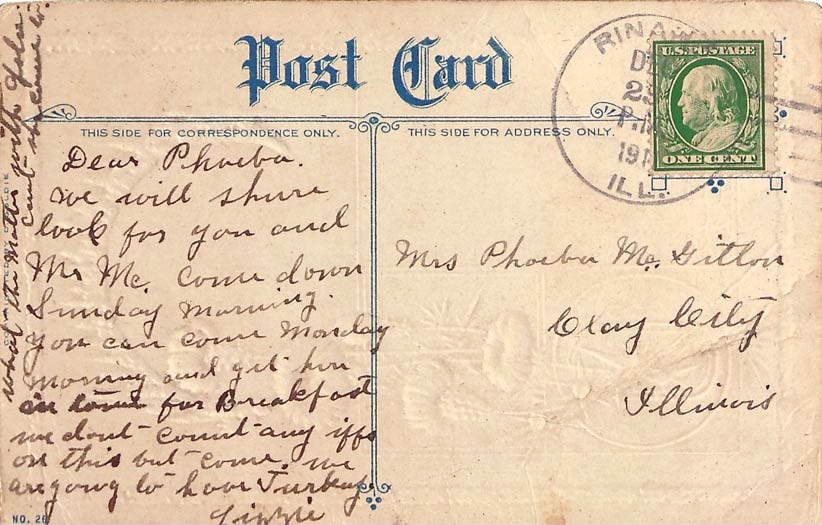 Post Card
THIS SIDE FOR CORRESPONDENCE ONLY.
THIS SIDE FOR ADDRESS ONLY.
RINA
23
P.M.
191
ILL.
U.S. POSTAGE
ONE CENT
Dear Phoeba.
we will shure
look for you and
Mr Mc. come down
Sunday morning.
you can come Monday
morning and get hur
in time for Breakfast
we dont count any iffs
on this but come. we
are going to have Turkey.
Lizzie
what the Matter with Lula.
cant she come to.
Mrs Phoeba Mc. Gitton
Clay City
Illinois
NO. 26